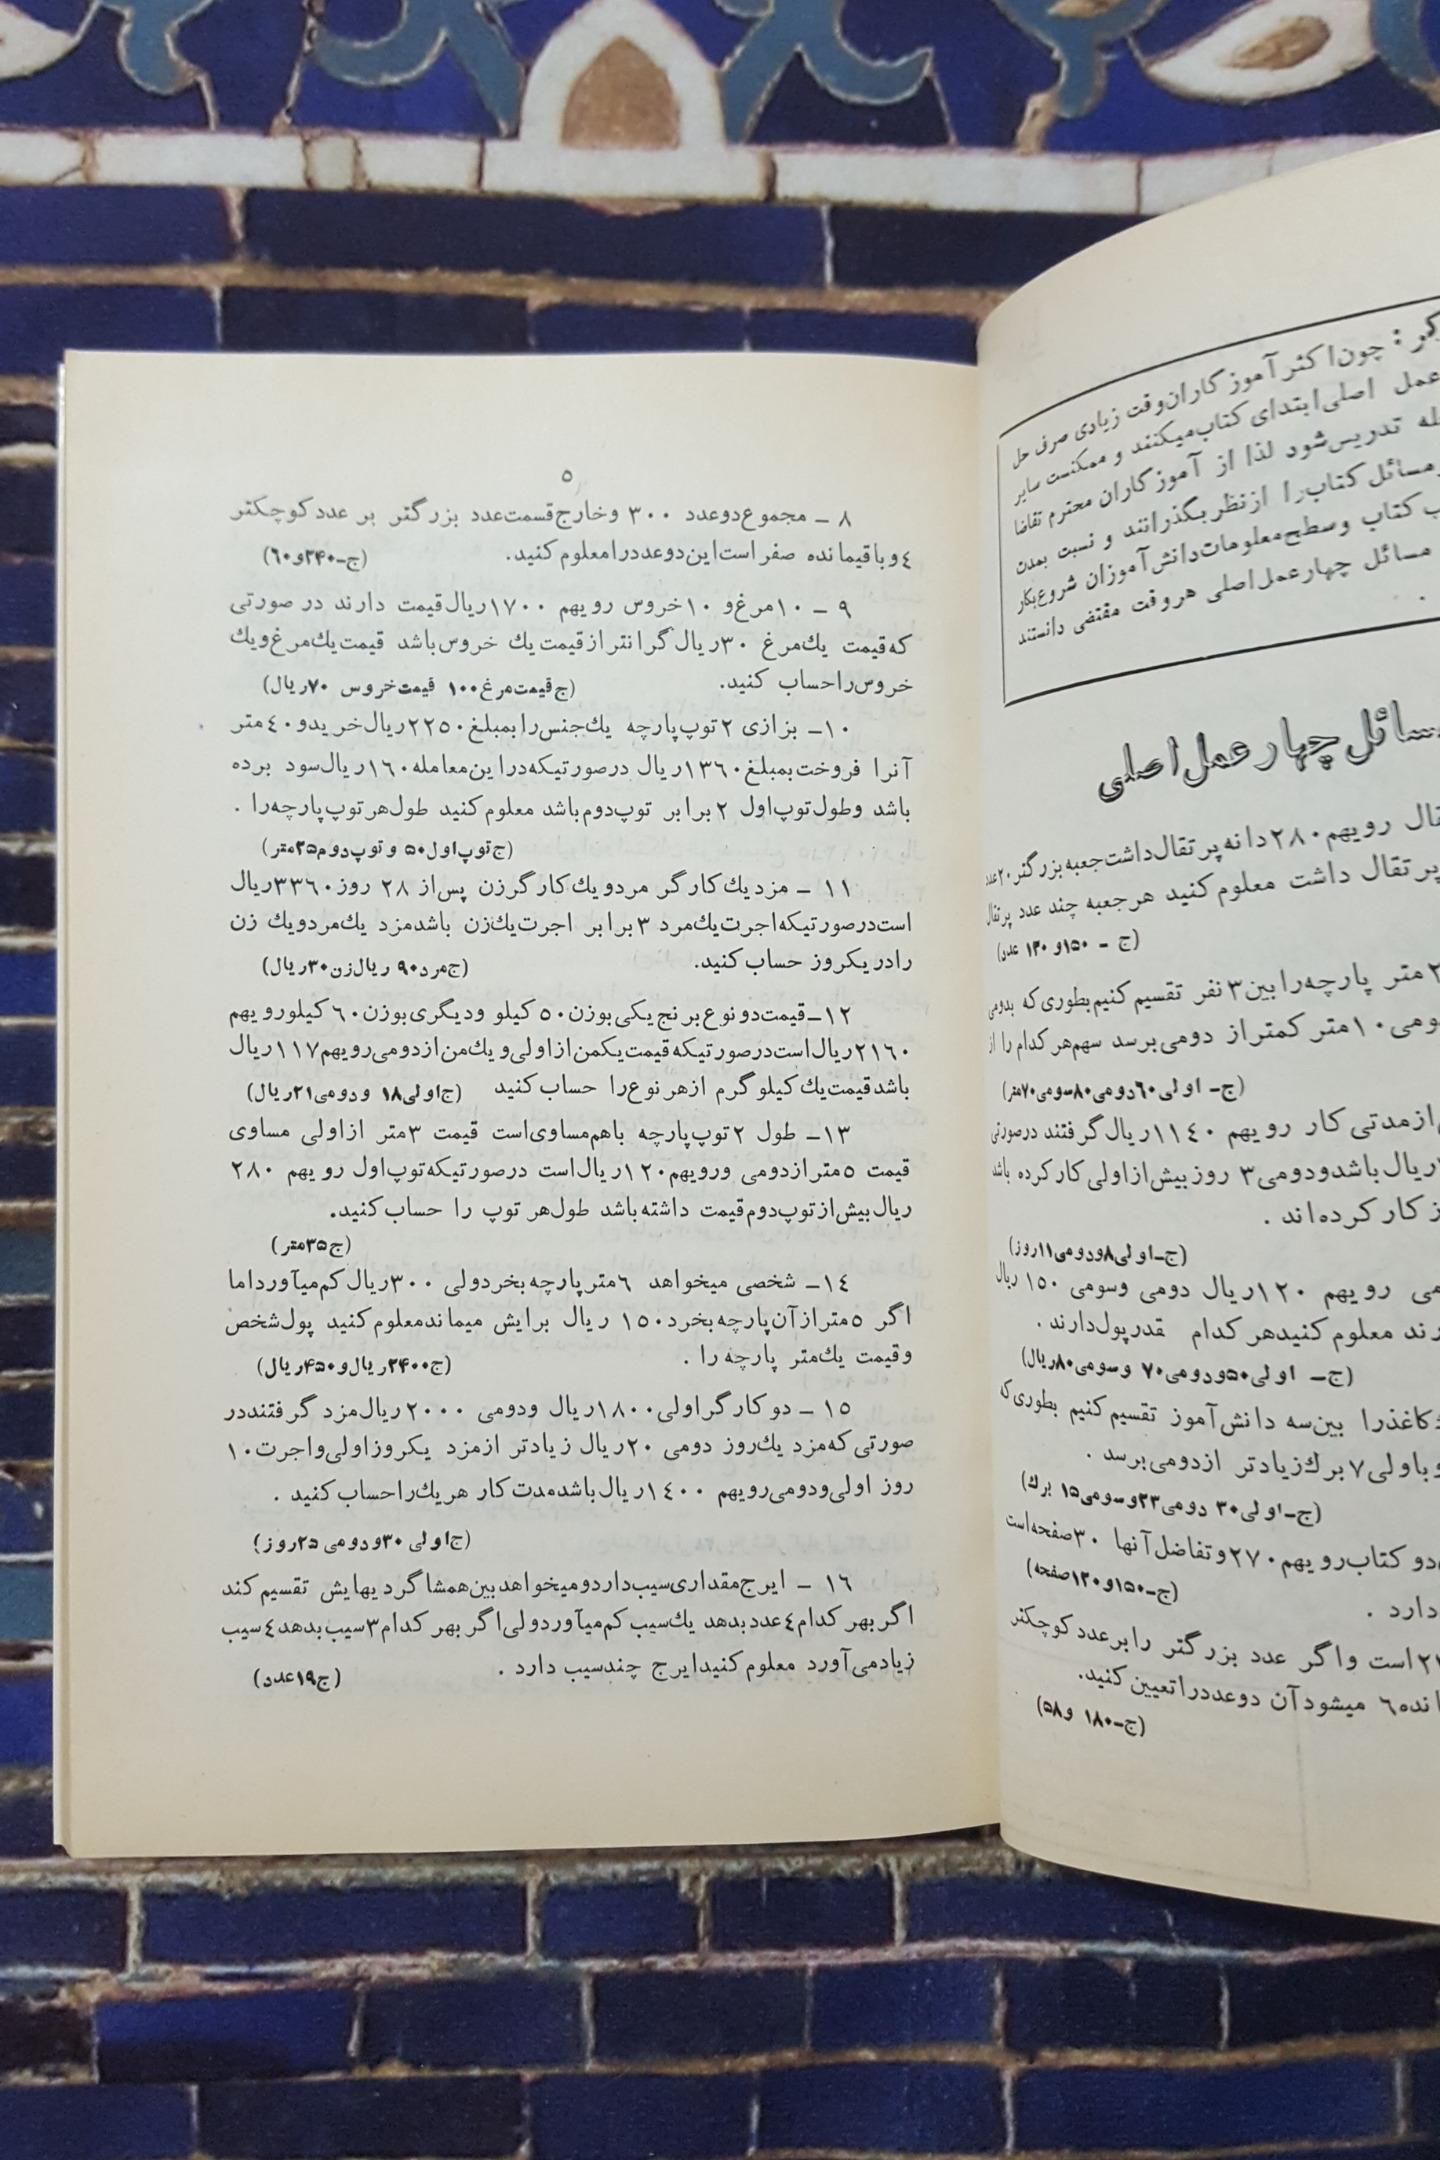 گر : چون اکثر آموزگاران وقت زیادی صرف حل
عمل اصلی ابتدای کتاب میکنند و ممکنست سایر
له تدریس شود لذا از آموزگاران محترم تقاضا
مسائل کتاب را از نظر بگذرانند و نسبت بمدت
ب کتاب و سطح معلومات دانش آموزان شروع بکار
مسائل چهار عمل اصلی هر وقت مقتضی دانستند
.
سائل چهار عمل اصلی
قال رویهم ۲۸۰ دانه پرتقال داشت جعبه بزرگتر ۲۰ عدد
پرتقال داشت معلوم کنید هر جعبه چند عدد پرتقال
(ج ـ ۱۵۰ و ۱۳۰ عدد)
متر پارچه را بین ۳ نفر تقسیم کنیم بطوری که بدومی
ومی ۱۰ متر کمتر از دومی برسد سهم هر کدام را از
(ج ـ اولی ۶۰ دومی ۸۰ سومی ۷۰ متر)
از مدتی کار رویهم ۱۱۴۰ ریال گرفتند در صورتی
ریال باشد و دومی ۳ روز بیش از اولی کار کرده باشد
ز کار کرده اند .
(ج ـ اولی ۸ و دومی ۱۱ روز)
می رویهم ۱۲۰ ریال دومی وسومی ۱۵۰ ریال
رند معلوم کنید هر کدام قدر پول دارند .
(ج ـ اولی ۵۰ و دومی ۷۰ و سومی ۸۰ ریال)
کاغذ را بین سه دانش آموز تقسیم کنیم بطوری که
و باولی ۷ برك زیادتر از دومی برسد .
(ج ـ اولی ۳۰ دومی ۲۳ و سومی ۱۵ برك)
دو کتاب رویهم ۲۷۰ و تفاضل آنها ۳۰ صفحه است
دارد .
(ج ـ ۱۵۰ و ۱۲۰ صفحه)
است و اگر عدد بزرگتر را بر عدد کوچکتر
انده ۶ میشود آن دو عدد را تعیین کنید.
(ج ـ ۱۸۰ و ۵۸)
۵
۸ ـ مجموع دو عدد ۳۰۰ و خارج قسمت عدد بزرگتر بر عدد کوچکتر
٤ و باقیمانده صفر است این دو عدد را معلوم کنید. (ج ـ ۲۴۰ و ۶۰)
۹ ـ ۱۰ مرغ و ۱۰ خروس رویهم ۱۷۰۰ ریال قیمت دارند در صورتی
که قیمت یك مرغ ۳۰ ریال گرانتر از قیمت یك خروس باشد قیمت یك مرغ و یك
خروس را حساب کنید. (ج قیمت مرغ ۱۰۰ قیمت خروس ۷۰ ریال)
۱۰ ـ بزازی ۲ توپ پارچه یك جنس را بمبلغ ۲۲۵۰ ریال خرید و ٤۰ متر
آنرا فروخت بمبلغ ۱۳٦۰ ریال در صورتیکه در این معامله ۱٦۰ ریال سود برده
باشد و طول توپ اول ۲ برابر توپ دوم باشد معلوم کنید طول هر توپ پارچه را .
(ج توپ اول ۵۰ و توپ دوم ۲۵ متر)
۱۱ ـ مزد یك کارگر مرد و یك کارگر زن پس از ۲۸ روز ۳۳٦۰ ریال
است در صورتیکه اجرت یك مرد ۳ برابر اجرت یك زن باشد مزد یك مرد و یك زن
را در یکروز حساب کنید. (ج مرد ۹۰ ریال زن ۳۰ ریال)
۱۲ ـ قیمت دو نوع برنج یکی بوزن ۵۰ کیلو و دیگری بوزن ٦۰ کیلو رویهم
۲۱٦۰ ریال است در صورتیکه قیمت یکمن از اولی و یك من از دومی رویهم ۱۱۷ ریال
باشد قیمت یك کیلو گرم از هر نوع را حساب کنید (ج اولی ۱۸ و دومی ۲۱ ریال)
۱۳ ـ طول ۲ توپ پارچه باهم مساوی است قیمت ۳ متر از اولی مساوی
قیمت ۵ متر از دومی و رویهم ۱۲۰ ریال است در صورتیکه توپ اول رویهم ۲۸۰
ریال بیش از توپ دوم قیمت داشته باشد طول هر توپ را حساب کنید.
(ج ۳۵ متر)
۱٤ ـ شخصی میخواهد ٦ متر پارچه بخرد ولی ۳۰۰ ریال کم میآورد اما
اگر ۵ متر از آن پارچه بخرد ۱۵۰ ریال برایش میماند معلوم کنید پول شخص
و قیمت یك متر پارچه را . (ج ۲۴۰۰ ریال و ۴۵۰ ریال)
۱۵ ـ دو کارگر اولی ۱۸۰۰ ریال و دومی ۲۰۰۰ ریال مزد گرفتند در
صورتی که مزد یك روز دومی ۲۰ ریال زیادتر از مزد یکروز اولی و اجرت ۱۰
روز اولی و دومی رویهم ۱٤۰۰ ریال باشد مدت کار هر یك را حساب کنید .
(ج اولی ۳۰ و دومی ۲۵ روز)
۱٦ ـ ایرج مقداری سیب دارد و میخواهد بین همشاگردیهایش تقسیم کند
اگر بهر کدام ٤ عدد بدهد یك سیب کم میآورد ولی اگر بهر کدام ۳ سیب بدهد ٤ سیب
زیاد می آورد معلوم کنید ایرج چند سیب دارد . (ج ۱۹ عدد)